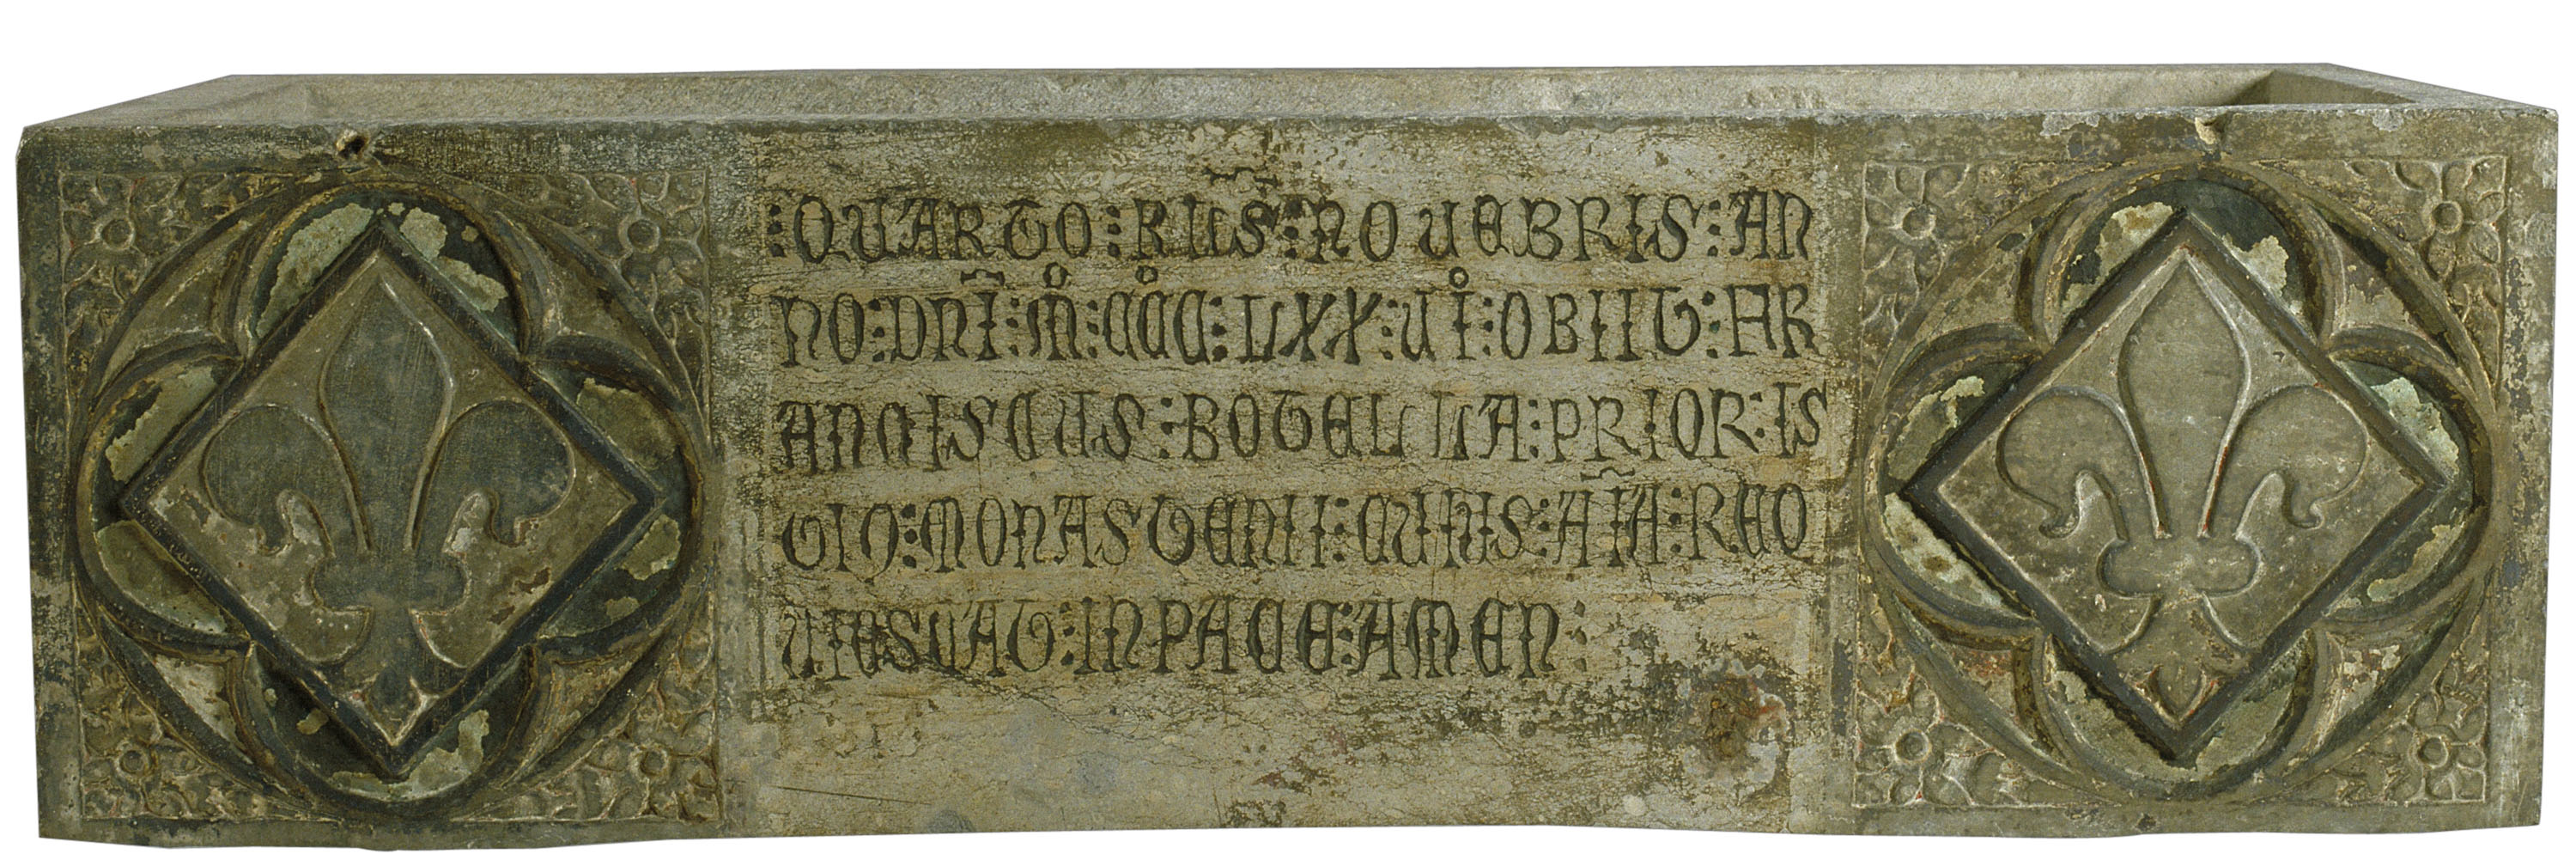 :QUARTO:KLS̄:NOVEBRIS:AN
NO:DNĪ:M̊:CC̊C:LXX:VI̊:OBIIT:FR
ANCISCUS:BOTELLA:PRIOR:IS
TIUS:MONASTERII:CUIUS:AĪA:REQ
UIESCAT:IN PACE:AMEN: